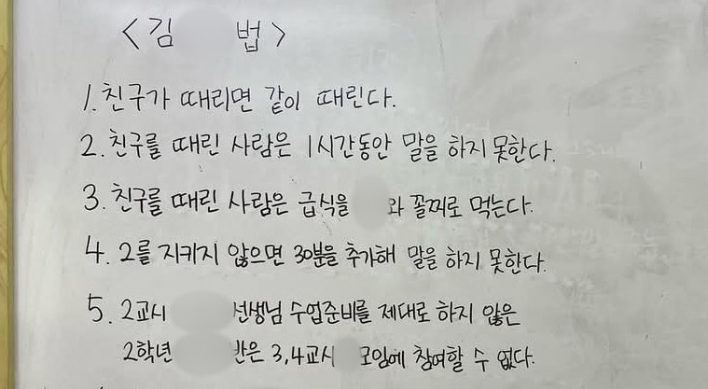 <김 법>
1. 친구가 때리면 같이 때린다.
2. 친구를 때린 사람은 1시간동안 말을 하지 못한다.
3. 친구를 때린 사람은 급식을 와 꼴찌로 먹는다.
4. 2를 지키지 않으면 30분을 추가해 말을 하지 못한다.
5. 2교시 선생님 수업준비를 제대로 하지 않은
2학년 반은 3,4교시 모임에 참여할 수 없다.